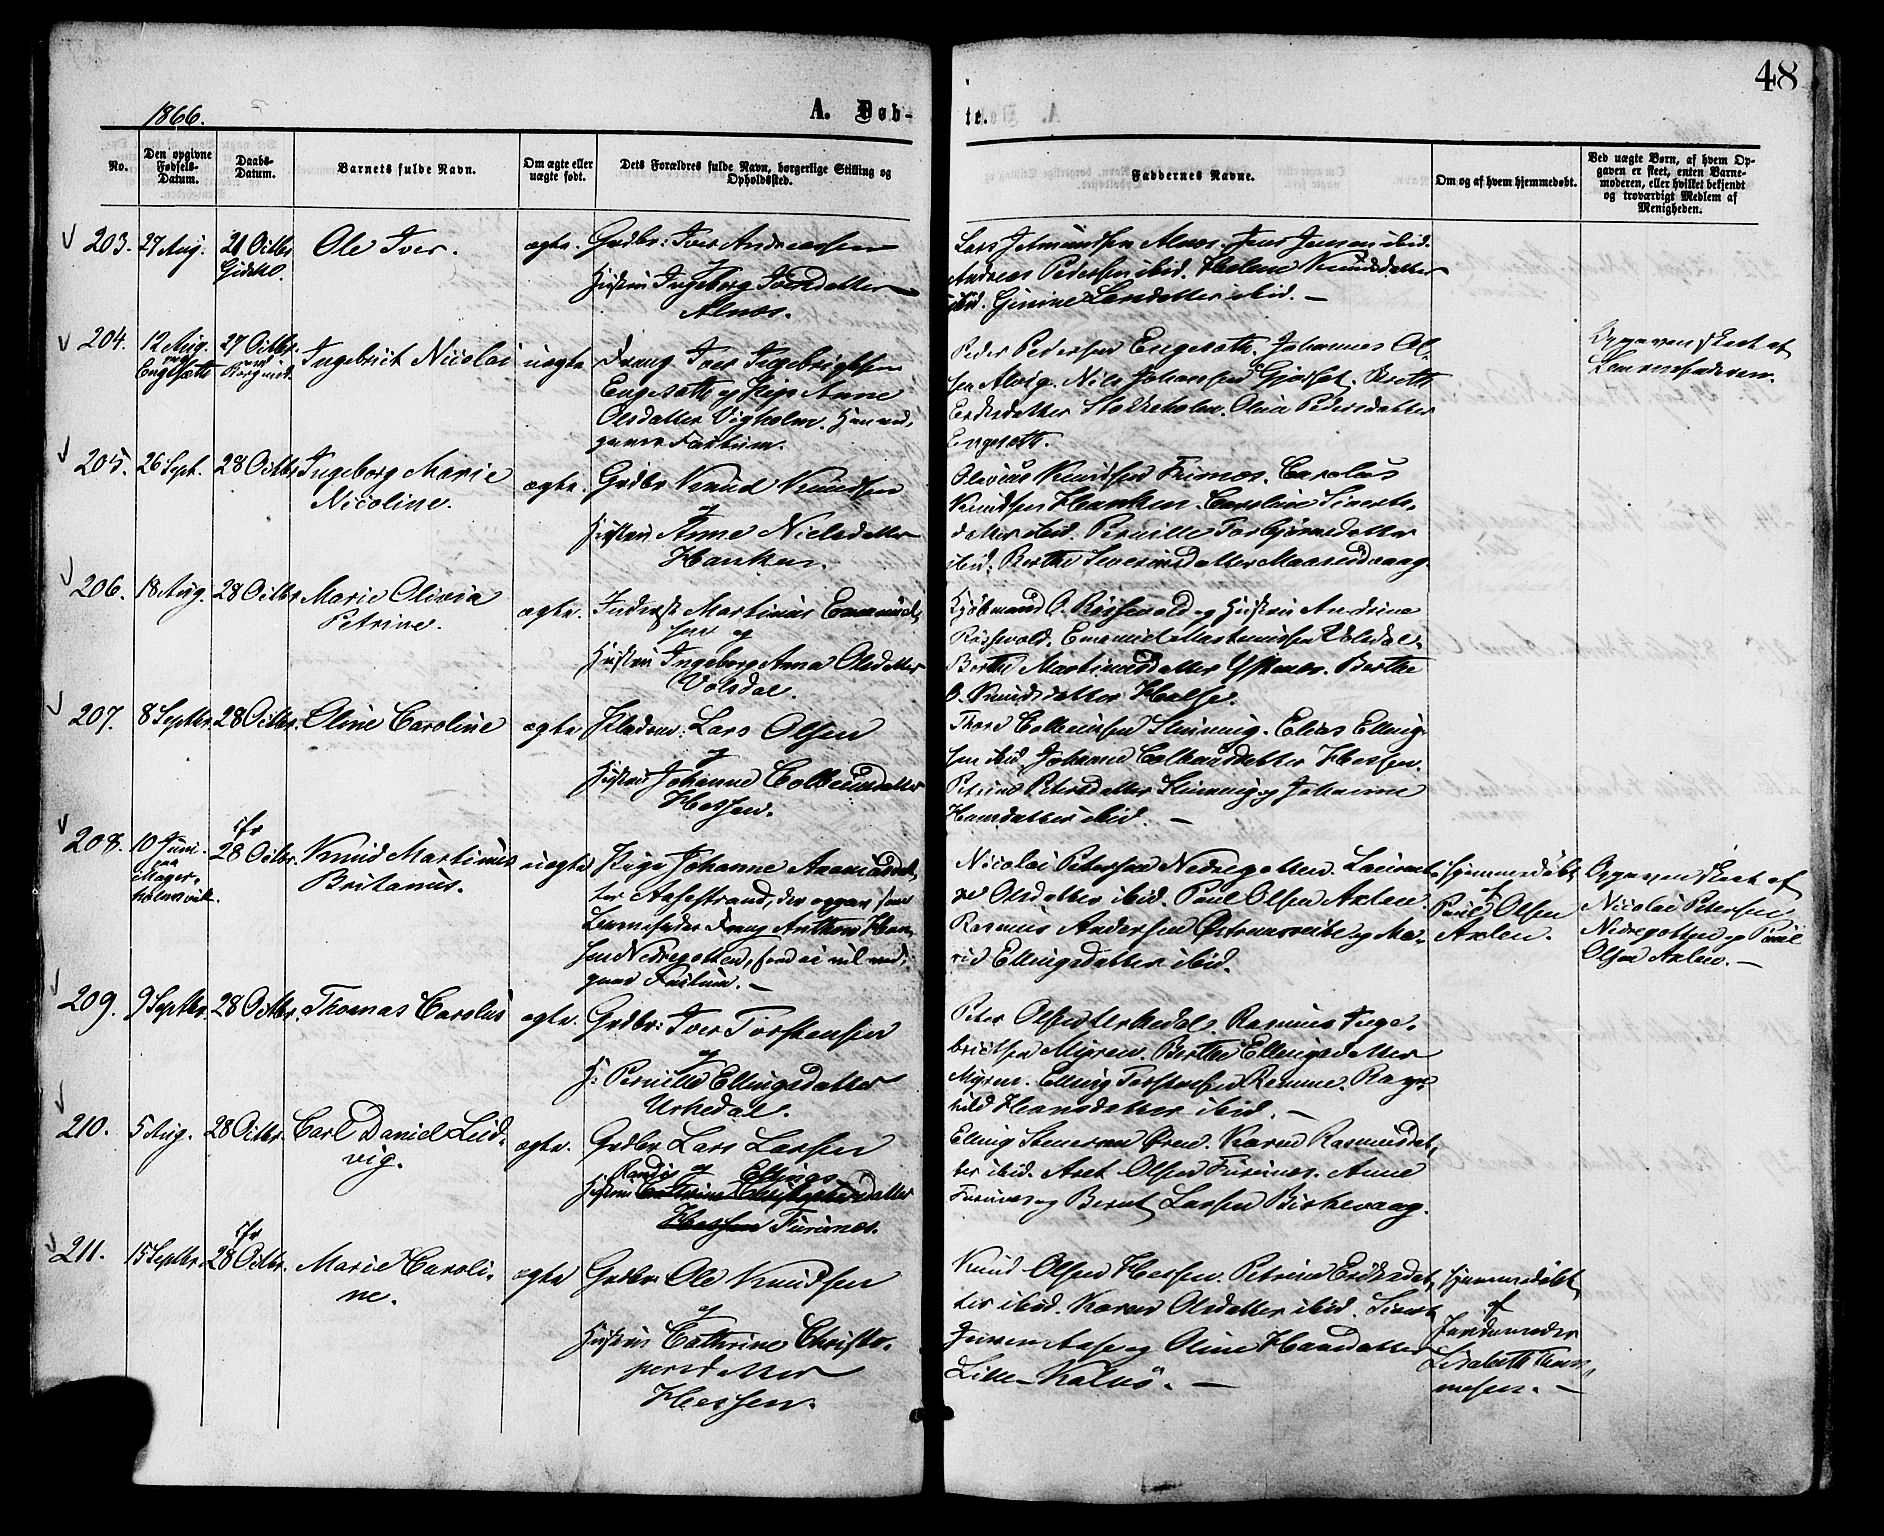 48
1866.
A. Døb-
te.
No.
Den opgivne Fødsels-Datum.
Daabs-Datum.
Barnets fulde Navn.
Om ægte eller uægte født.
Dets Forældres fulde Navn, borgerlige Stilling og Opholdssted.
Faddernes Navne.
Om og af hvem hjemmedøbt.
Ved uægte Børn, af hvem Opgaven er skeet, enten Barnemoderen, eller hvilket bekjendt og troværdigt Medlem af Menigheden.
203. 27 Aug. 21 Octbr. Ole Iver. ægte. Grdbr: Iver Andreassen
og
Hustru Ingeborg Iversdatter
Alnæs.
Lars Jetmundsen Alnæs. Jens Jensen ibid.
Andreas Pedersen ibid. Helene Knudsdatter
ibid. Larsdatter ibid. —
204. 12 Aug. paa Engesæth 27 Octbr. Borgund. Ingebrict Nicolai uægte Dreng Iver Ingebrigtsen
Engesæth og Pige Anne
Olsdatter Vigholm.
Peder Pedersen Engesæth. Johannes Ol-
sen Nils Johansen Gjørset.
Eriksdatter Stokkeholm. Olina Pedersdatter
Engesæth.
Opgaven skeet af
Barnefaderen.
205. 26 Sept. 28 Octbr. Ingeborg Marie
Nicoline. ægte. Grdbr Knud Knudsen
og
Hustru Anne Nielsdatter
Hanken.
Olevius Knudsen Furnæs. Carolus
Knudsen Hanken. Caroline Siverts-
datter ibid. Pernille Torbjørnsdatter
ibid. Berthe Severinsdatter
206. 18 Aug. 28 Octbr. Marie Olivia
Petrine. ægte. Inderst Martinus Emanuel-
sen og
Hustru Ingeborg Anna Olsdatter
Volsdal.
Kjøbmand O. Røssevold og Hustru Andrine
Røssevold. Emanuel Martinussen Volsdal.
Berthe Martinusdatter Ystenæs. Berthe
B. Knudsdatter Helse.
207. 8 Septbr. 28 Octbr. Oline Caroline ægte Lars Olsen
og
Hustru Johanne Colbeinsdatter
Hessen.
Thore Colbeinsen Slinning. Elias Elling-
sen ibid. Johanne Colbeinsdatter Hessen.
Petrine Petersdatter Slinning og Johanne
Hansdatter ibid. —
208. 10 Juni paa Magerholmsvik. ifr 28 Octbr. Knud Martinus
Britanus. uægte Pige Johanne Aamundsdat-
ter Aasestrand, der opgav som
Barnefader Dreng Anthon Han-
sen Nedregotten,
Nicolai Petersen Nedregotten. Laurent-
ne Olsdatter ibid. Paul Olsen Axlen.
Rasmus Andersen og Ma-
rid Ellingsdatter ibid.
hjemmedøbt
af
Paul Olsen
Axlen.
Opgaven skeet af
Nicolai Petersen
Nedregotten og Paul
Olsen Axlen. —
209. 9 Septbr. 28 Octbr. Thomas Carolus ægte. Grdbr: Iver Torstensen
og
H: Pernille Ellingsdatter
Urkedal.
Peter Olsen Urkedal. Rasmus Inge-
brictsen Myren. Berthe Ellingsdatter
Myren. Elling Torstensen Remme. Ragn-
hild Hansdatter ibid. —
210. 5 Aug. 28 Octbr. Carl Daniel Lud-
vig. ægte. Grdbr Lars Larsen
og
Randi Ellings
Hustru Cathrine Christophersdatter
Hessen Furunæs.
Elling Stenersen Øren. Karen Rasmusdat-
ter ibid. Axel Olsen Furunæs. Anne
Furunæs og Bernt Larsen Birkevaag.
211. 15 Septbr. ifr 28 Octbr. Marie Caroli-
ne. ægte Grdbr: Ole Knudsen
og
Hustru Cathrine Christo-
persdatter
Hessen.
Knud Olsen Hessen. Petrine Eriksdat-
ter ibid. Karen Olsdatter ibid. Sivert
Aase og Oline Hansdatter
Lille-Kalvø. —
hjemmedøbt
af
Jordemoder
Lisabeth Thom-
mesen. —